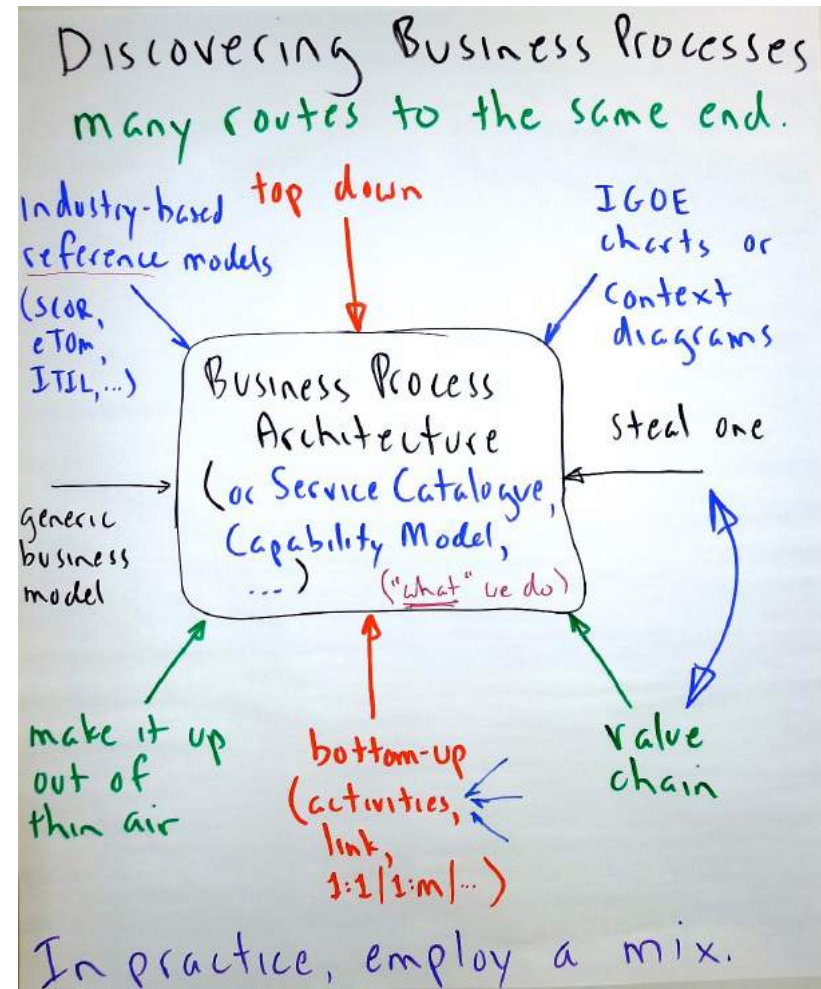 Discovering Business Processes
many routes to the same end.
industry-based
reference models
(SCOR,
eTom,
ITIL,...)
top down
IGOE
charts or
context
diagrams
Business Process
Architecture
(or Service Catalogue,
Capability Model,
...)
("what" we do)
steal one
generic
business
model
make it up
out of
thin air
bottom-up
(activities,
link,
1:1|1:m|...)
value
chain
In practice, employ a mix.